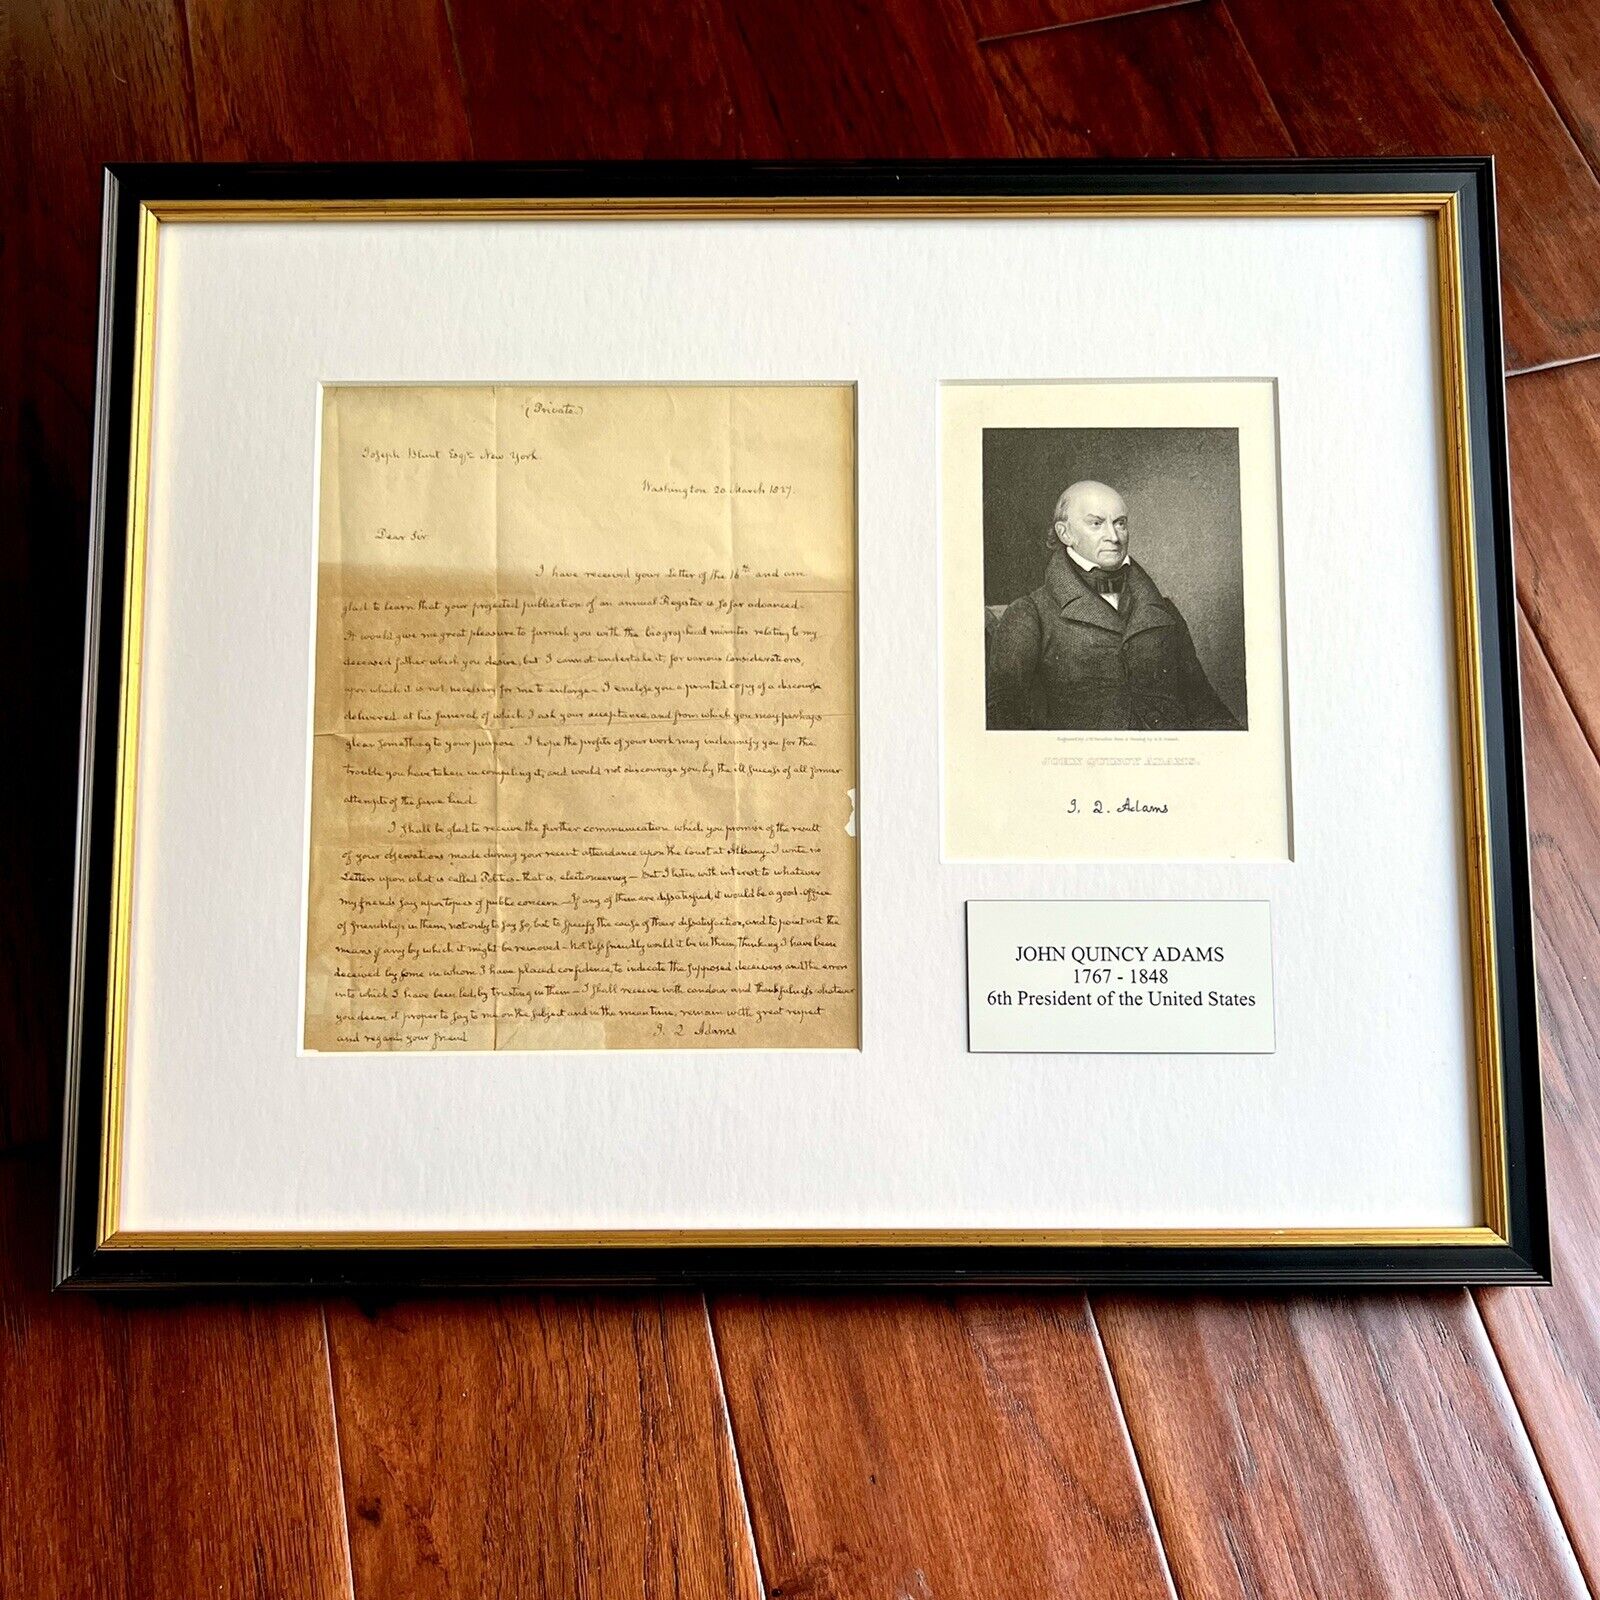 (Private)
Joseph Blunt Esqr. New York.
Washington 20 March 1827.
Dear Sir
I have received your Letter of the 16th and am
glad to learn that your projected publication of an annual Register is so far advanced.
It would give me great pleasure to furnish you with the biographical minutes relating to my
deceased father which you desire, but I cannot undertake it, for various considerations,
upon which it is not necessary for me to enlarge - I enclose you a printed copy of a discourse
delivered at his funeral of which I ask your acceptance and from which you may perhaps
glean something to your purpose. I hope the profits of your work may indemnify you for the
trouble you have taken in compiling it, and would not discourage you by the ill success of all former
attempts of the same kind
I shall be glad to receive the further communication which you promise of the result
of your observations made during your recent attendance upon the Court at Albany - I write no
Letters upon what is called Politics - that is, electioneering - But I listen with interest to whatever
my friends say upon topics of public concern - If any of them are dissatisfied, it would be a good office
of friendship in them, not only to say so, but to specify the cause of their dissatisfaction, and to point out the
means if any by which it might be removed - Not less friendly would it be in them, thinking I have been
deceived by some in whom I have placed confidence, to indicate the supposed deceivers and the errors
into which I have been led, by trusting in them - I shall receive with candour and thankfulness whatever
you deem it proper to say to me on the subject and in the mean time, remain with great respect
and regard your friend
J. Q. Adams
JOHN QUINCY ADAMS.
J. Q. Adams
JOHN QUINCY ADAMS
1767 - 1848
6th President of the United States